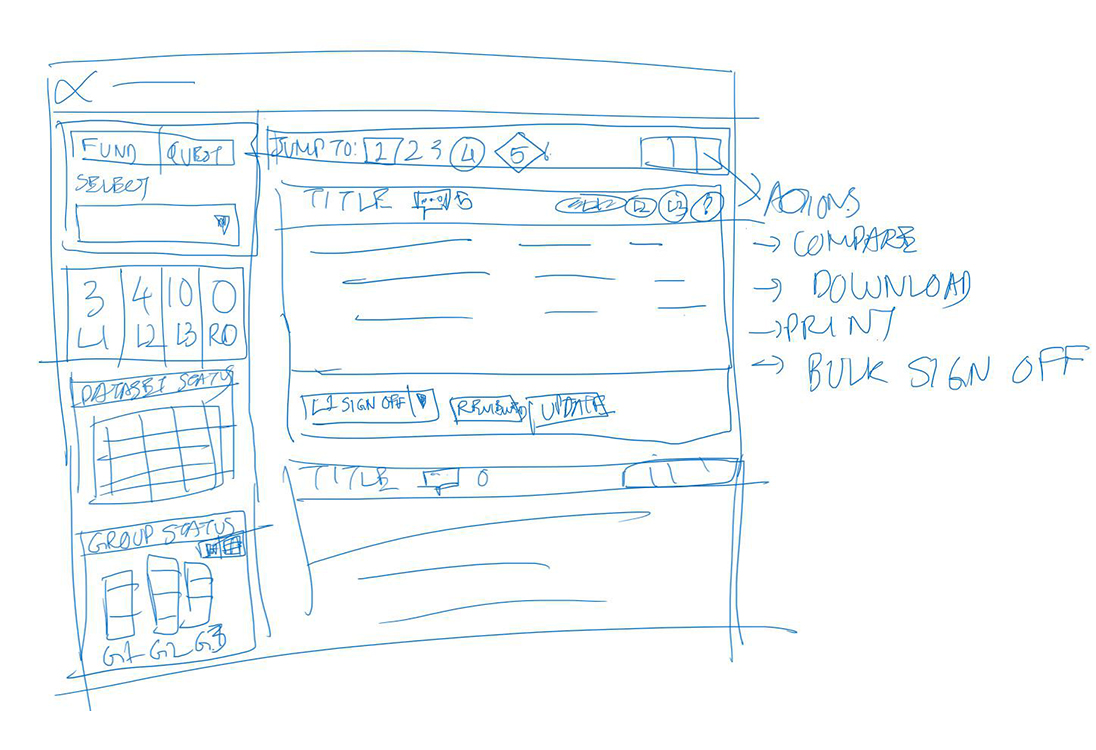 FUND QUEST
SELECT
3 4 10 0
L1 L2 L3 RO
DATASET STATUS
GROUP STATUS
G1 G2 G3
JUMP TO: 1 2 3 4 5 6
TITLE 5 L2 L3 ?
L1 SIGN OFF REVIEWED UPDATE
TITLE 0
ACTIONS
→ COMPARE
→ DOWNLOAD
→ PRINT
→ BULK SIGN OFF